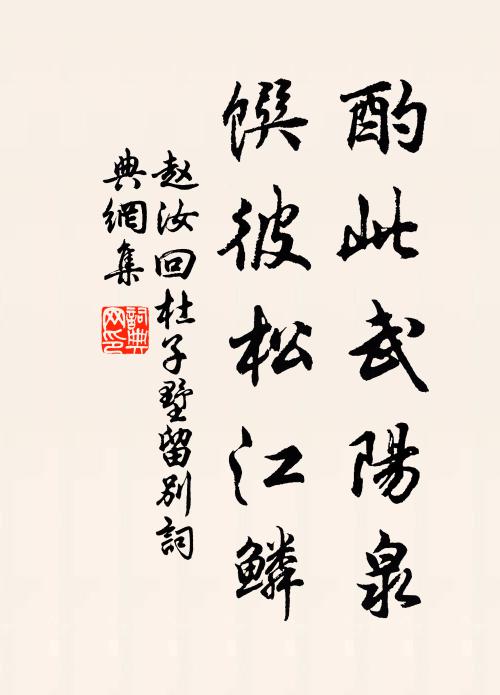 酌此武陽泉
饌彼松江鱗
赵汝回杜子墅留別詞
典網集
詞典网印